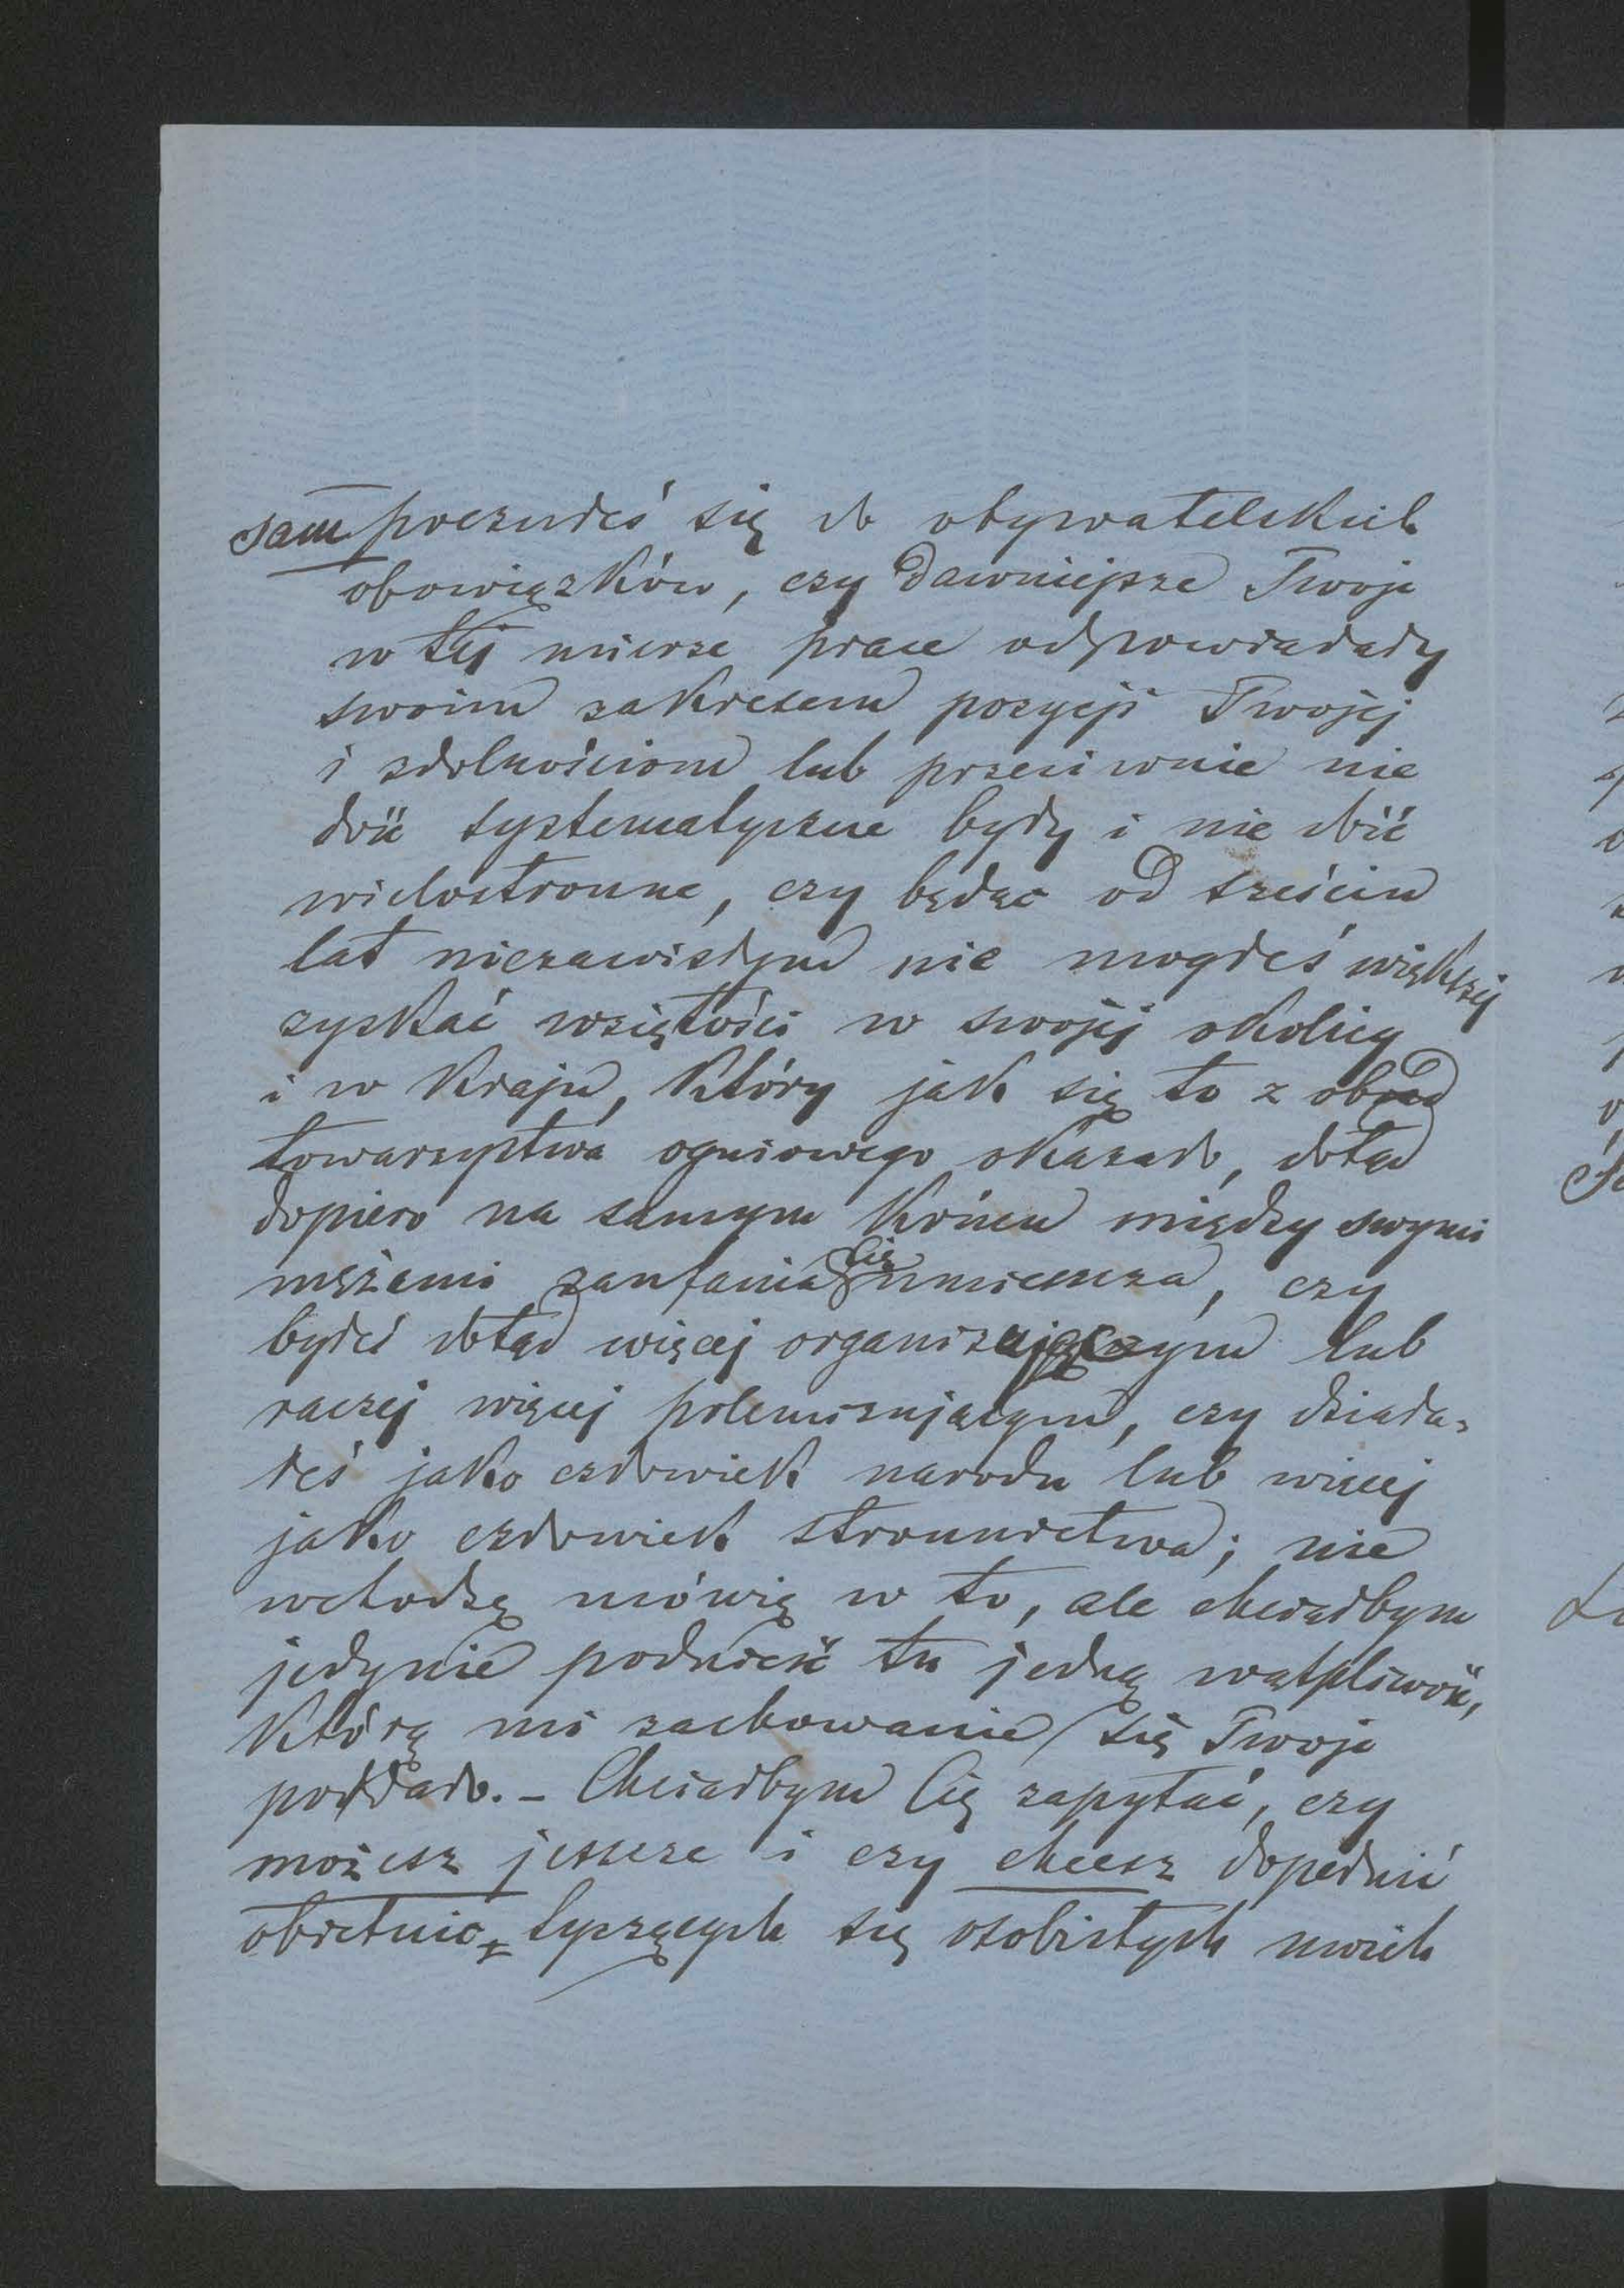 sam poczułeś się do obywatelskich
obowiązków, czy dawniejsze Twoje
w tej mierze prace odpowiadały
swoim zakresem pozycji Twojej
i zdolnościom lub przeciwnie nie
dość systematyczne były i nie dość
wielostronne, czy będąc od sześciu
lat niezawisłym nie mogłeś większej
zyskać wziętości w swojej okolicy
i w kraju, który jak się to z obrad
towarzystwa ogniowego okazało, dotąd
dopiero na samym końcu między swymi
mężami zaufania Cię umieszcza, czy
byłeś dotąd więcej organizującym lub
raczej więcej polemizującym, czy działa-
łeś jako człowiek narodu lub więcej
jako człowiek stronnictwa; nie
wchodzę mówię w to, ale chciałbym
jedynie podnieść tu jedną wątpliwość,
którą mi zachowanie się Twoje
poddało. – Chciałbym Cię zapytać, czy
możesz jeszcze i czy chcesz dopełnić
obietnic, tyczących się osobistych moich